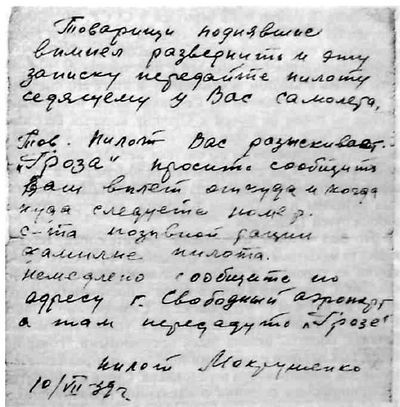 Товарищи поднявшие
вимпел развернить и эту
записку передайте пилоту
седящему у Вас самолета.
Тов. Пилот Вас разыскивает
"Гроза" просит сообщить
Ваш вылет откуда и когда
куда следуете номер.
с-та позывной рации
фамилие пилота.
немедлено сообщите по
адресу г. Свободный аэропорт
а там передадут "Грозе"
пилот Мокрушенко
10/VII 39 г.